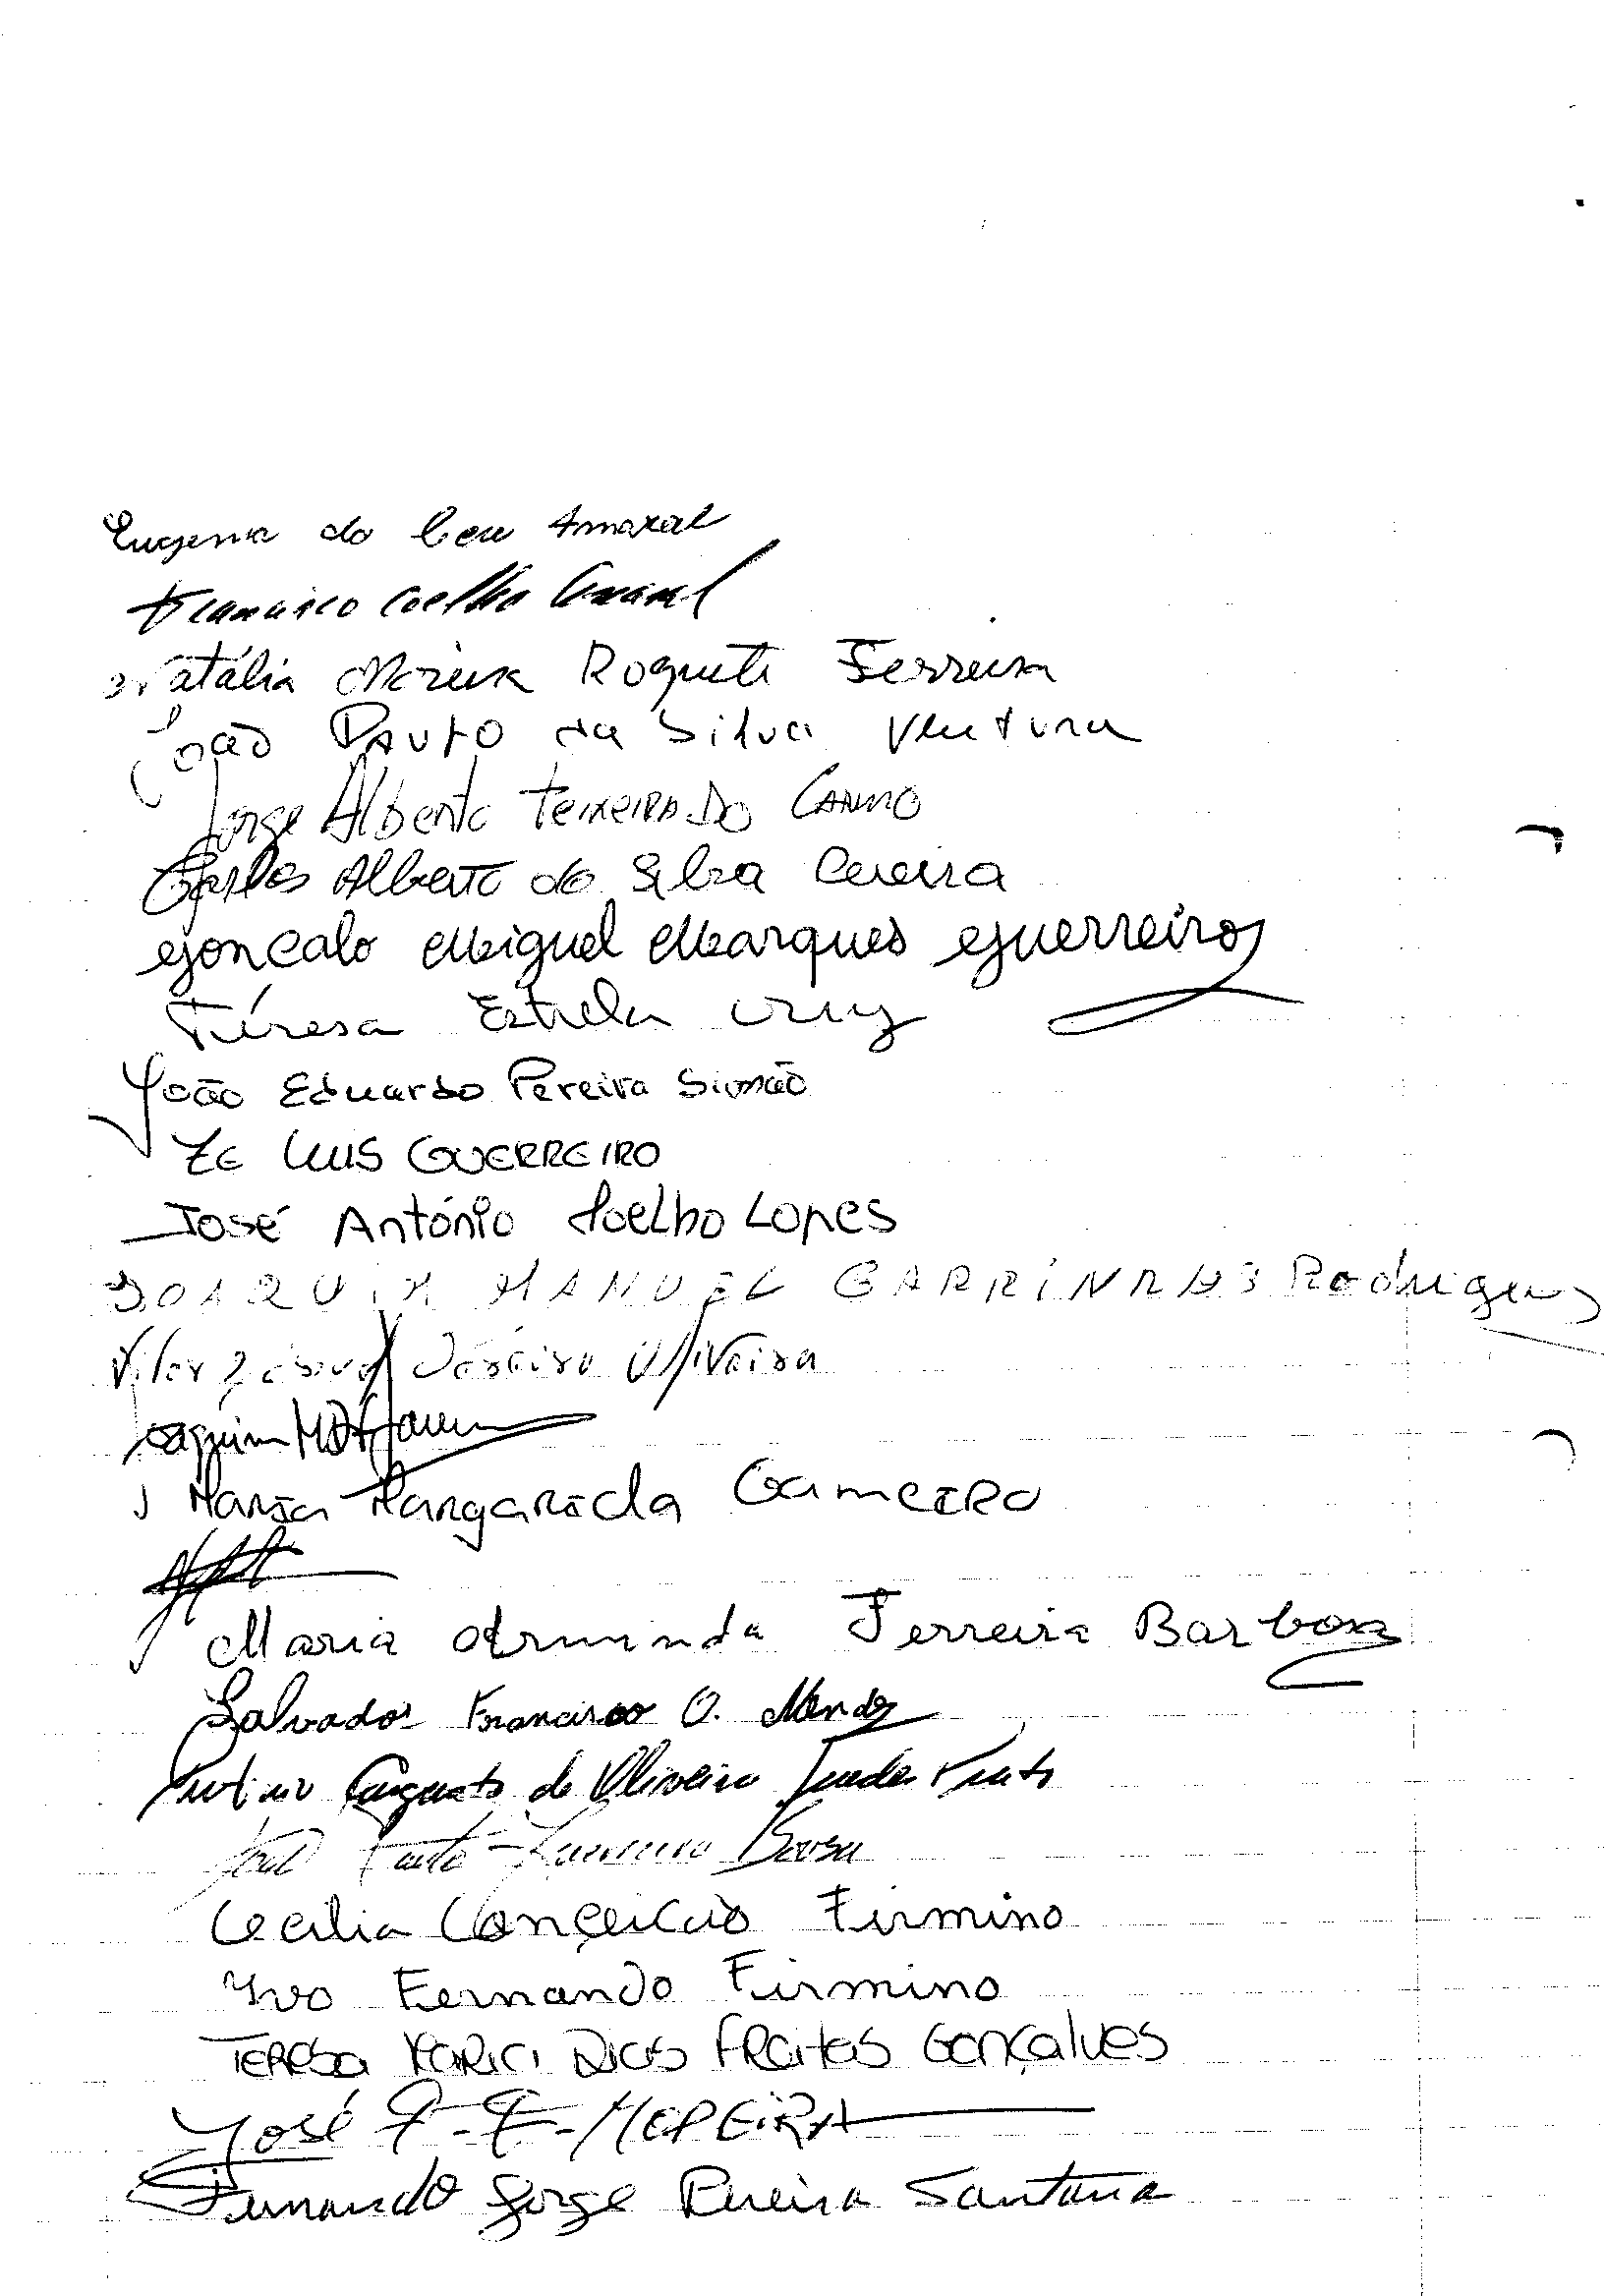 Eugenia do Ceu Amaral
Francisco Coelho Amaral
Natália Moreira Roquete Ferreira
João Paulo da Silva Ventura
Jorge Alberto Teixeira Do Carmo
Carlos Alberto da Silva Pereira
Gonçalo Miguel Marques Guerreiro
Téresa Estrela Cruz
João Eduardo Pereira Simão
ZE LUIS GUERREIRO
José António Coelho Lopes
JOAQUIM MANUEL GARRINHAS Rodrigues
Vitor Oliveira
Joaquim
Maria Margarida Gameiro
Maria Arminda Ferreira Barbosa
Salvador Francisco O. Mendes
Augusto de Oliveira Pinto
Sousa
Cecilia Conceição Firmino
Ivo Fernando Firmino
TERESA MARIA DIAS FREITAS GONÇALVES
José F. F.
Fernando Jorge Pereira Santana